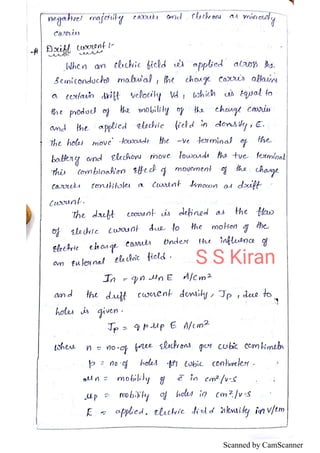 negative majority carriers and Electrons as minority
carriers
Drift current :-
When an electric field is applied across the
semiconductor material, the charge carriers attains
a certain drift velocity Vd, which is equal to
the product of the mobility of the charge carriers
and the applied electric field in density, E.
The holes move towards the -ve terminal of the
battery and electrons move towards the +ve terminal
This combination effect of movement of the charge
carriers constitutes a current known as drift
current.
The drift current is defined as the flow
of electric current due to the motion of the
Electric charge carriers under the influence of
an External electric field.
S S Kiran
Jn = qn μn E A/cm²
and the drift current density, Jp, due to
holes is given.
Jp = q p μp E A/cm²
where n = no. of free electrons per cubic centimeter
p = no. of holes per cubic centimeter.
μn = mobility of e̅ in cm²/v-s
μp = mobility of holes in cm²/v-s
E = applied. Electric field intensity in v/cm
Scanned by CamScanner